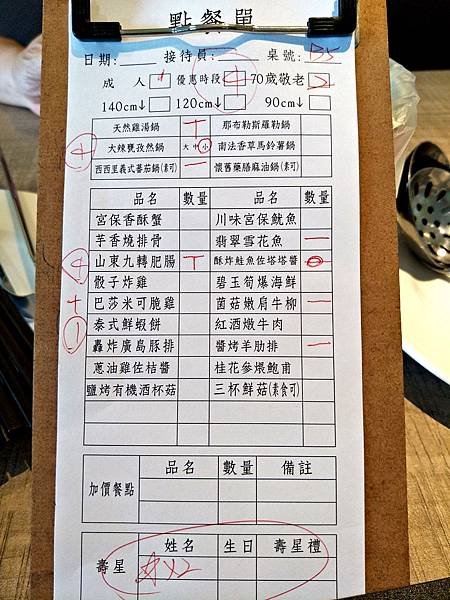 點餐單
日期: 接待員: 桌號: B5
成人 優惠時段 70歲敬老
140cm↓ 120cm↓ 90cm↓
天然雞湯鍋 丅 那布勒斯羅勒鍋
④ 大辣甕孜然鍋 大 中 小 南法香草馬鈴薯鍋
西西里義式蕃茄鍋(素可) 一 懷舊藥膳麻油鍋(素可)
品名 數量 品名 數量
宮保香酥蟹 川味宮保魷魚
芋香燒排骨 翡翠雪花魚 一
④ 山東九轉肥腸 丅 酥炸鮭魚佐塔塔醬
骰子炸雞 碧玉筍爆海鮮
+ 巴莎米可脆雞 菌菇嫩肩牛柳 一
① 泰式鮮蝦餅 紅酒燉牛肉
轟炸廣島豚排 醬烤羊肋排 一
蔥油雞佐桔醬 桂花參煨鮑甫
鹽烤有機酒杯菇 三杯鮮菇(素食可)
加價餐點 品名 數量 備註
壽星 姓名 生日 壽星禮
X2